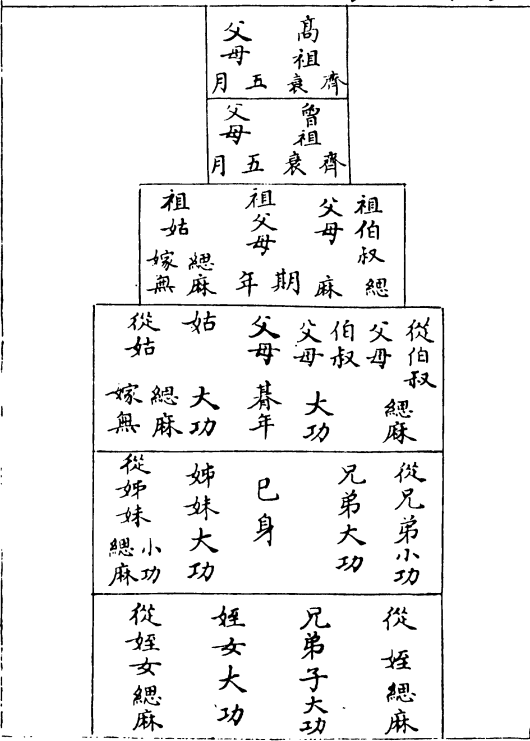 高祖父母
齊衰五月
曾祖父母
齊衰五月
祖伯叔父母
緦麻
祖父母
期年
祖姑
緦麻
嫁無
從伯叔父母
緦麻
伯叔父母
大功
父母
朞年
姑
大功
從姑
緦麻
嫁無
從兄弟小功
兄弟大功
已身
姊妹大功
從姊妹
小功
緦麻
從姪緦麻
兄弟子大功
姪女大功
從姪女緦麻